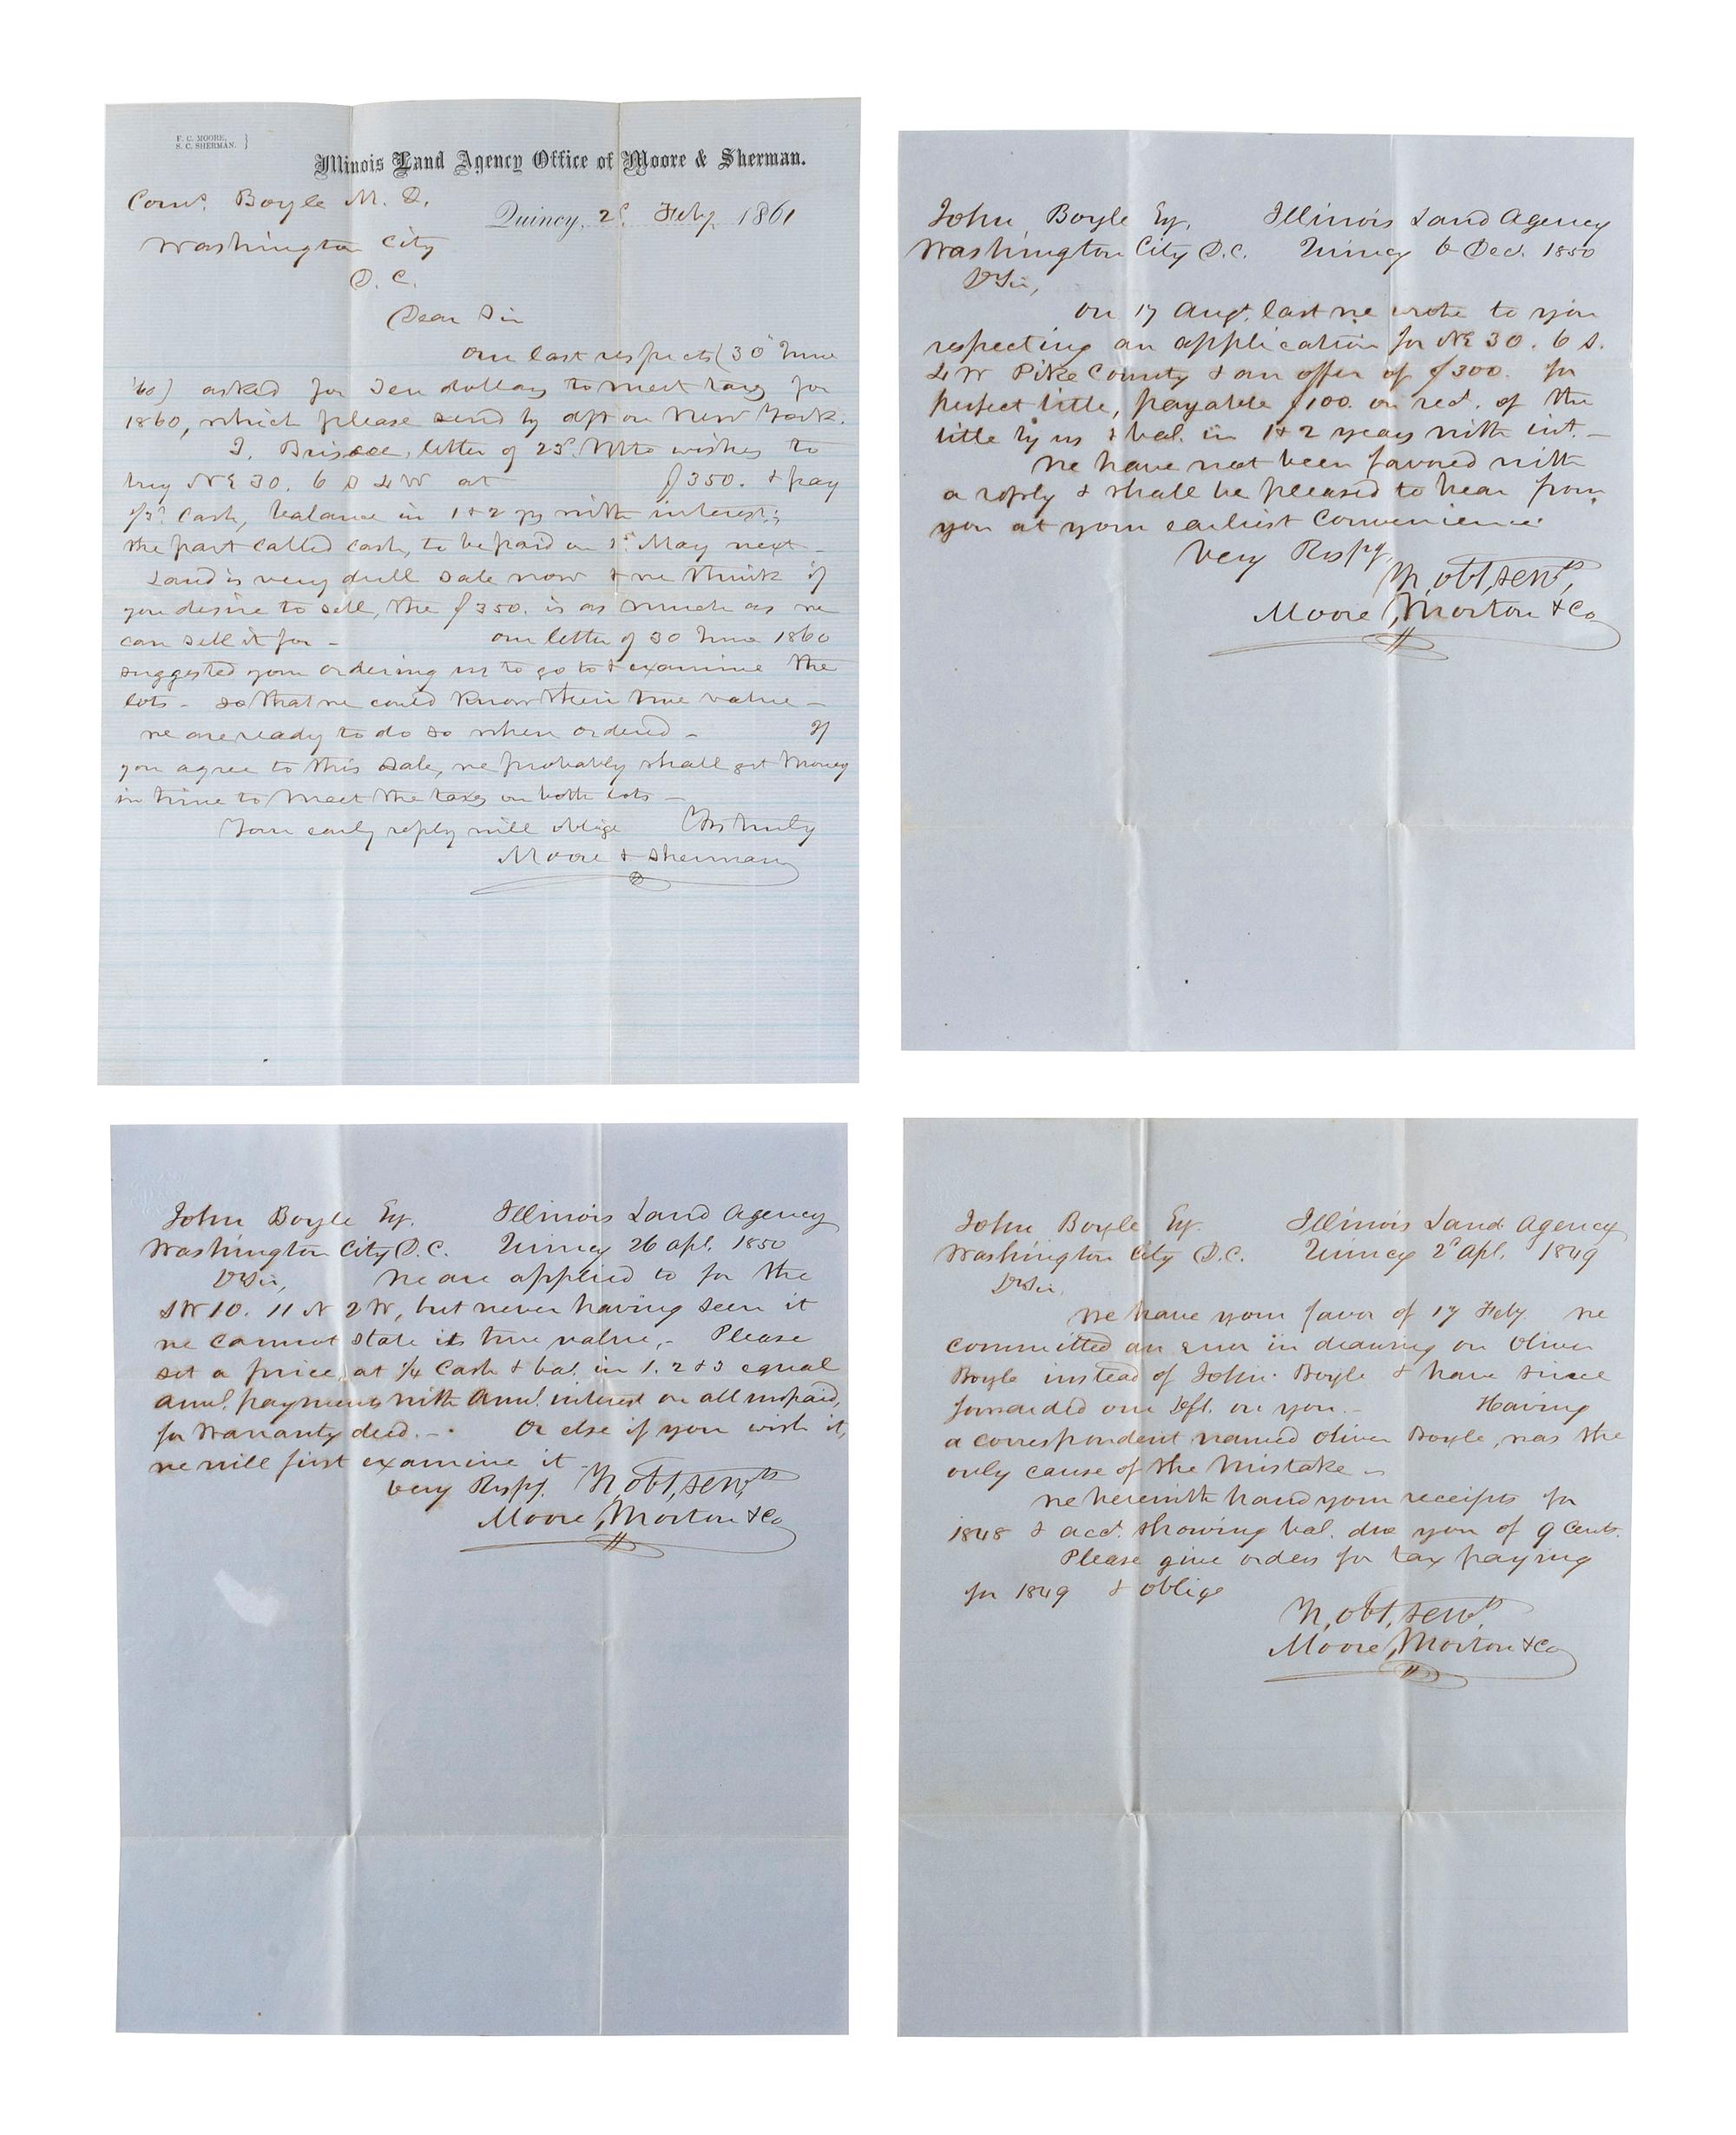 F. C. MOORE,
S. C. SHERMAN. }
Illinois Land Agency Office of Moore & Sherman.
Corns. Boyle M. D.
Quincy, 2d Feby 1861
Washington City
D. C.
Dear Sir
Our last respects (30 June
'60) asked for Ten dollars to meet taxes for
1860, which please send by dft on New York.
J. Briscoe, letter of 23d Ulto wishes to
buy NE 30. 6 S 4W at $350. & pay
1/3d Cash, balance in 1 & 2 ys with interest;
the part called cash, to be paid on 1st May next -
Land is very dull sale now & we think if
you desire to sell, the $350. is as much as we
can sell it for - our letter of 30 June 1860
suggested your ordering us to go to & examine the
lots - so that we could know their true value -
we are ready to do so when ordered - If
you agree to this sale, we probably shall get money
in time to meet the taxes on both lots -
Your early reply will oblige Yrs truly
Moore & Sherman
John Boyle Esq. Illinois Land Agency
Washington City D.C. Quincy 6 Decr. 1850
Dr Sir,
On 17 Augt. last we wrote to you
respecting an application for NE 30. 6 S.
4 W Pike County & an offer of $300. for
perfect title, payable $100. on rect. of the
title by us & bal. in 1 & 2 years with int. -
We have not been favored with
a reply & shall be pleased to hear from
you at your earliest convenience.
Very Respy.
Yr, obt, servts,
Moore, Morton & Co
John Boyle Esq. Illinois Land Agency
Washington City D.C. Quincy 26 Apl. 1850
Dr Sir, We are applied to for the
SW 10. 11 N 2 W, but never having seen it
we cannot state its true value, - Please
set a price, at 1/4 Cash & bal. in 1. 2 & 3 equal
annl. payments with annl. interest on all unpaid,
for Warranty deed. - . Or else if you wish it,
we will first examine it -
Very Respy. Yr, obt, servts
Moore, Morton & Co
John Boyle Esq. Illinois Land Agency
Washington City D.C. Quincy 2d Apl. 1849
Dr Sir,
We have your favor of 17 Feby. We
committed an error in drawing on Oliver
Boyle instead of John Boyle & have since
forwarded our Dft. on you. - Having
a correspondent named Oliver Boyle, was the
only cause of the mistake -
We herewith hand your receipts for
1848 & acct. showing bal. due you of 9 Cents.
Please give orders for tax paying
for 1849 & oblige
Yr, obt, servts
Moore, Morton & Co